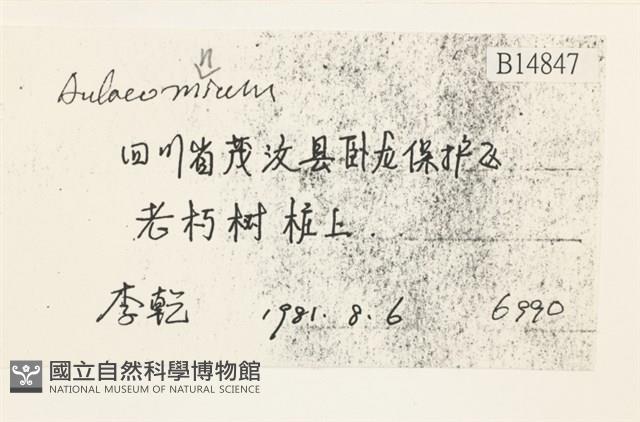 B14847
n
Aulacomnium
四川省茂汶县卧龙保护区
老朽树桩上.
李乾 1981.8.6 6990
國立自然科學博物館
NATIONAL MUSEUM OF NATURAL SCIENCE